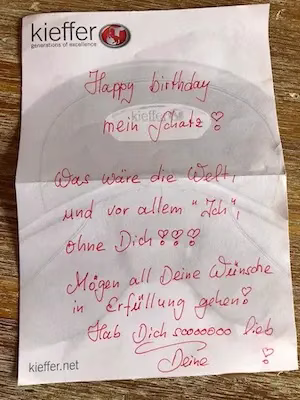 kieffer
generations of excellence.
Happy birthday
mein Schatz!
kieffer
Was wäre die Welt,
und vor allem "Ich",
ohne Dich!!!
Mögen all Deine Wünsche
in Erfüllung gehen!
Hab Dich sooooooo lieb
Deine !
kieffer.net